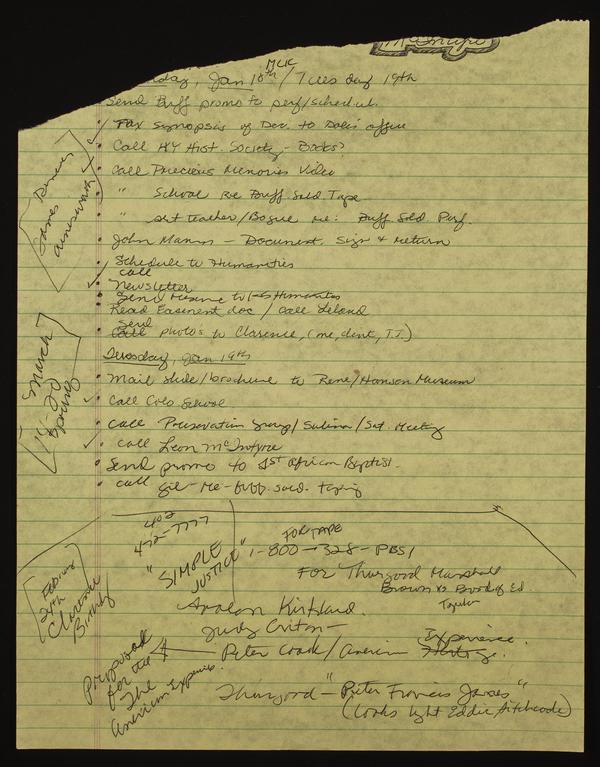 day, Jan 18th MLK / Tuesday 19th
Send Buff promo to perf/schedul.
Fax Synopsis of Doc. to Dole's office
Call KY Hist. Society - Books?
Call Precious Memories Video
" School Re Buff Sold Tape
" art teacher/Bogue re: Buff Sold Perf.
John Manns - Document, Sign & return
Schedule to Humanities
call
Newsletter
Send resume to Humanities
Read Easement doc / call Leland
Send
Call photos to Clarence, (me, dent, T.T.)
Tuesday, Jan 19th
Mail slide/brochure to Rene/Hanson Museum
Call Colo School
Call Preservation Group / Sabina / Sat. Meeting
call Leon McIntyre
Send promo to 1st African Baptist.
call Gil - Re - buff. sold. taping
March
19-20
Spring
402
472-7777
"SIMPLE JUSTICE"
FOR TAPE
1-800-328-PBS1
For Thurgood Marshall
Brown vs Board of Ed
Topeka
Avalon Kirkland
Judy Criton -
Peter Cook / American Heritage. Experience.
Proposal
for the
The
American Experience
24th
Clarence
Thurgood - "Peter Francis James"
(Looks light Eddie Hitchcock)